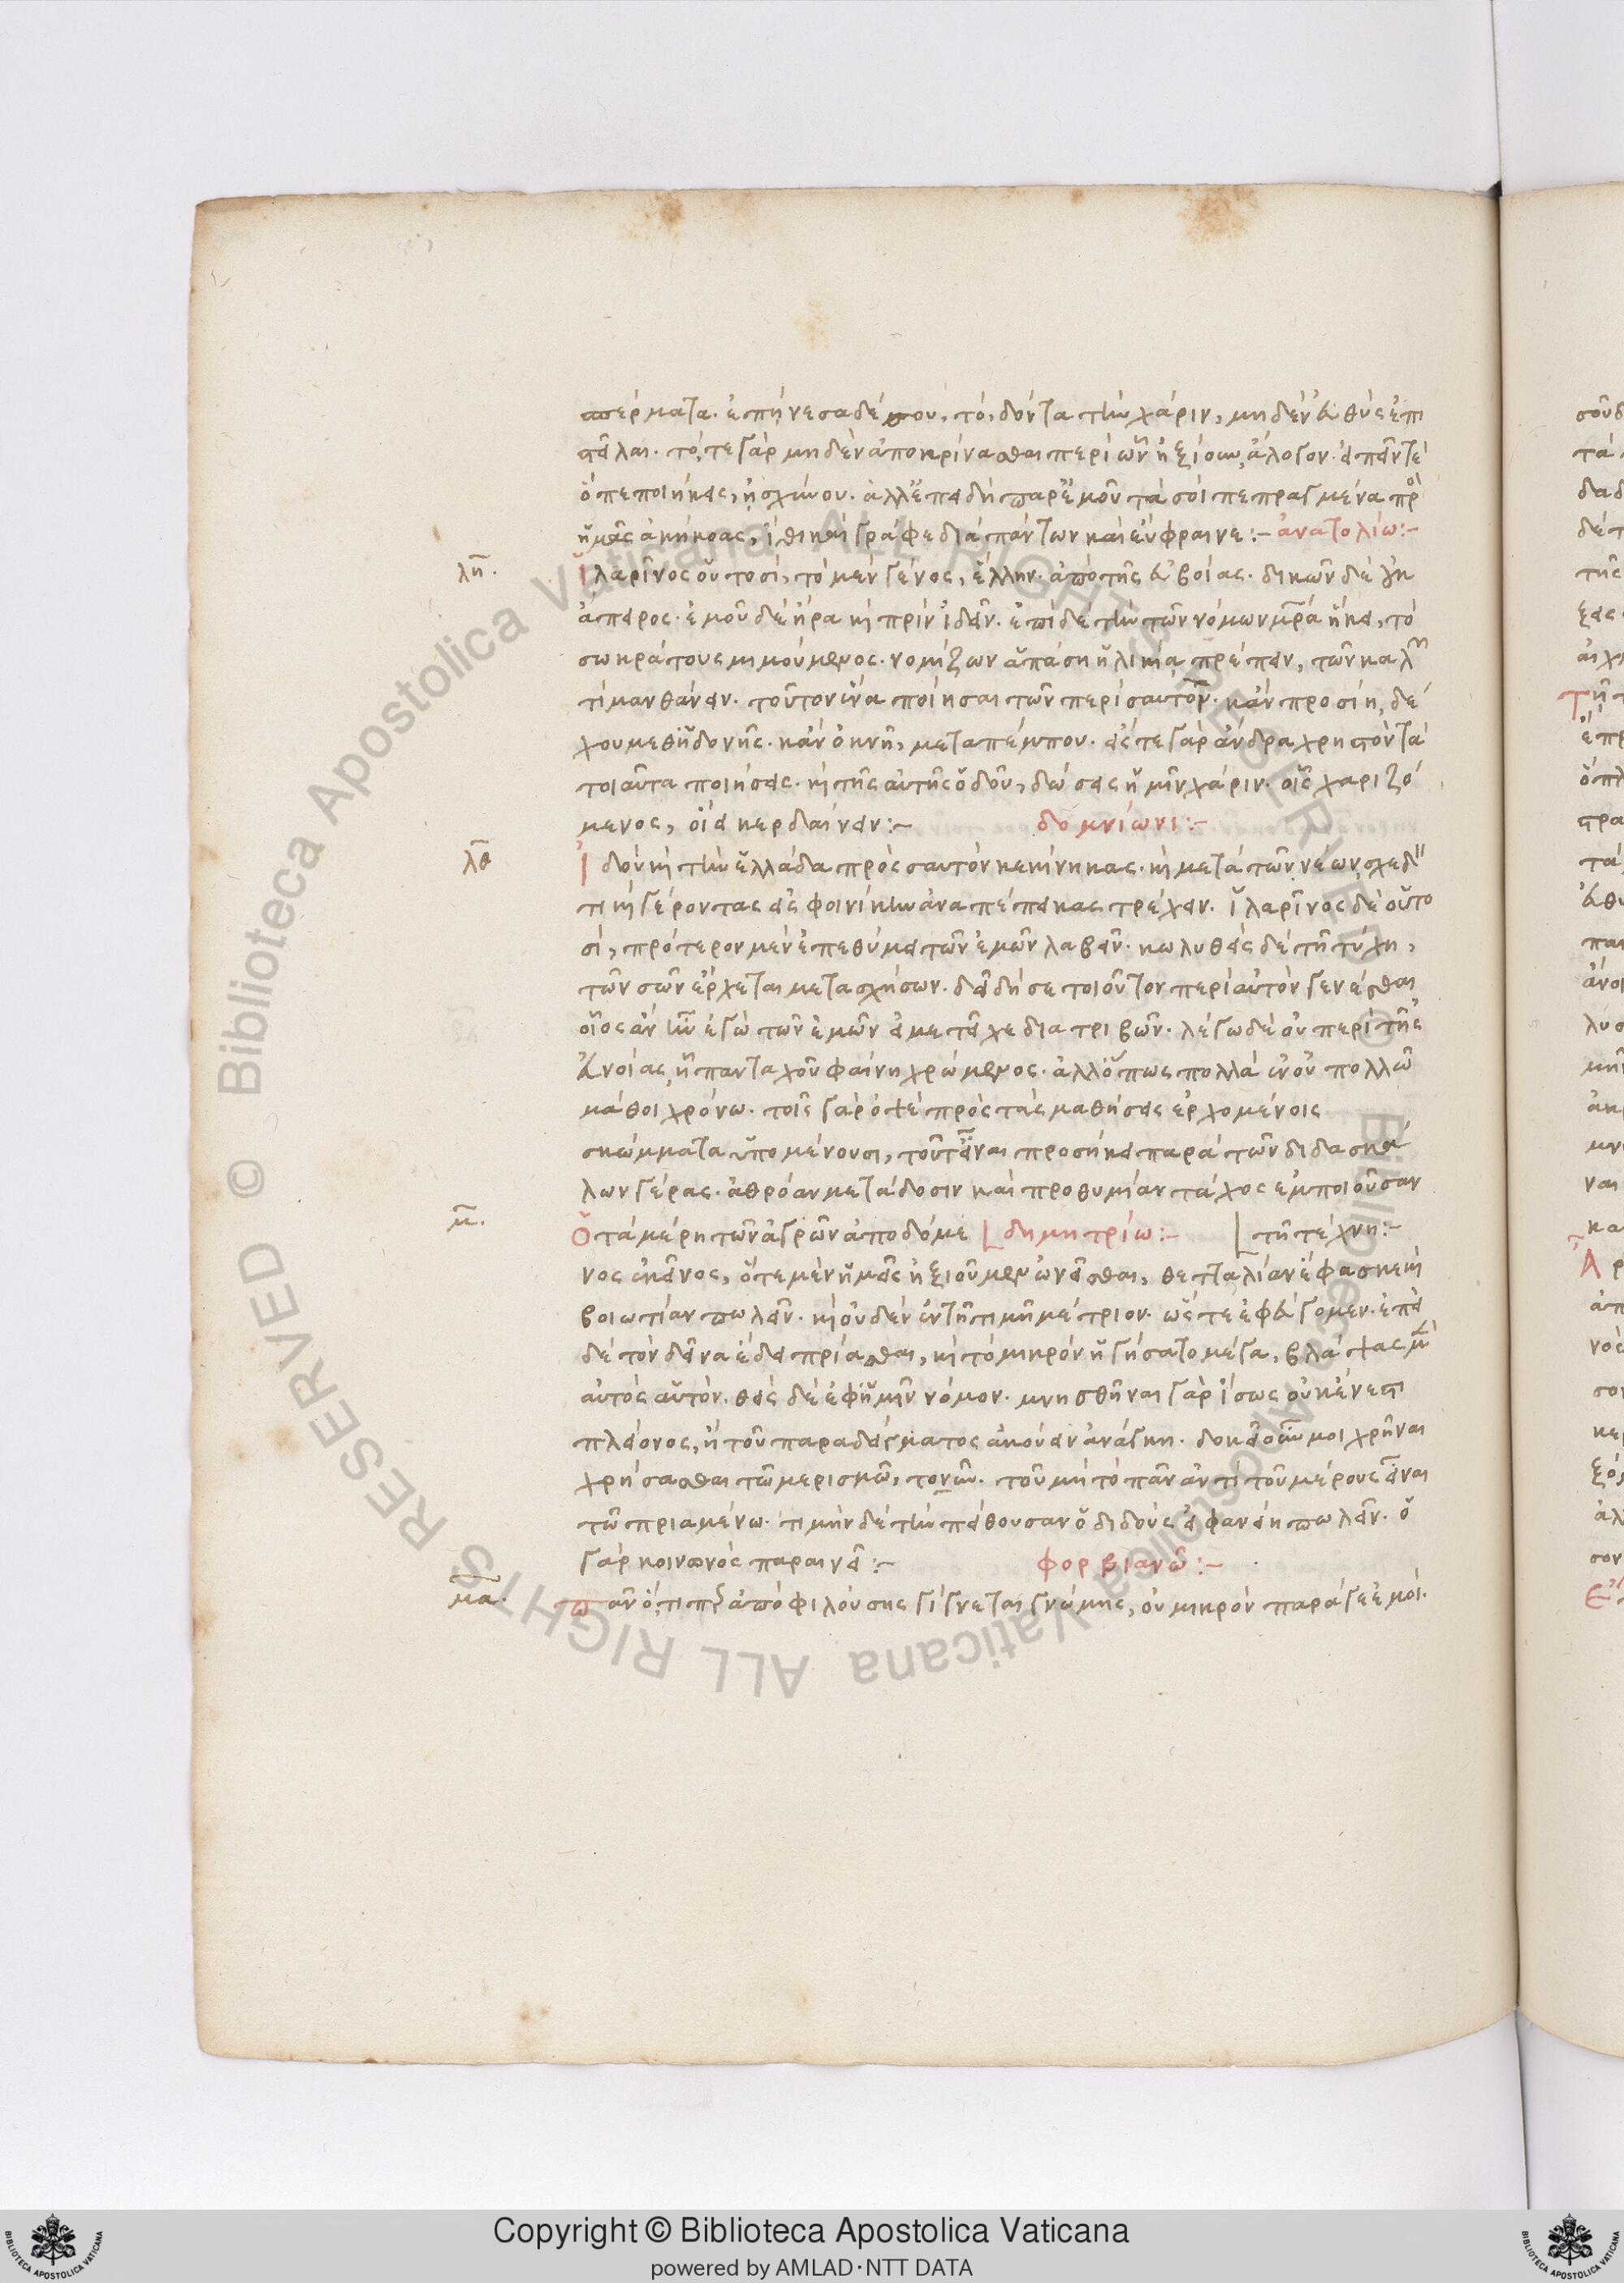 σπέρματα. ἐπῄνεσα δέ σου, τὸ, δόντα τὴν χάριν, μηδὲν εὐθὺς ἐπι
στεῖλαι. τό, τε γὰρ μηδὲν ἀποκρίνασθαι περὶ ὧν ἠξίουν, ἄλογον. εἰπεῖν τε
ὃ πεποιήκεις, ᾐσχύνου. ἀλλ' ἐπειδὴ παρ' ἐμοῦ τὰ σοὶ πεπραγμένα πρὸ
ἡμᾶς ἀκήκοας, ἴθι καὶ γράφε διὰ πάντων καὶ εὔφραινε :- ἀνατολίω :-
λη. Ἱλαρῖνος οὑτοσὶ, τὸ μὲν γένος, ἕλλην. ἀπὸ τῆς εὐβοίας. δικῶν δὲ οὐκ
ἄπειρος. ἐμοῦ δὲ ἤρα καὶ πρὶν ἰδεῖν. ἐπὶ δὲ τὴν τῶν νόμων μητέρα ἥκει, τὸ
σωκράτους μιμούμενος. νομίζων ἁπάσῃ ἡλικίᾳ πρέπειν, τῶν καλῶν
τι μανθάνειν. τοῦτον ἕνα ποίησαι τῶν περὶ σαυτόν. κἂν προσίῃ, δέ
χου μεθ' ἡδονῆς. κἂν ὀκνῇ, μεταπέμπου. εἴς τε γὰρ ἄνδρα χρηστὸν τὰ
τοιαῦτα ποιήσεις. καὶ τῆς αὐτῆς ὁδοῦ, δώσεις ἡμῖν χάριν. οἷς χαριζό
μενος, οἶδα κερδαίνειν :- δομνίωνι :-
λθ Ἰδοὺ καὶ τὴν ἑλλάδα πρὸς σαυτὸν κεκίνηκας. καὶ μετὰ τῶν νέων, σχεδόν
τι καὶ γέροντας εἰς φοινίκην ἀναπέπεικας τρέχειν. ἱλαρῖνος δὲ οὗτο
σὶ, πρότερον μὲν ἐπεθύμει τῶν ἐμῶν λαβεῖν. κωλυθεὶς δὲ τῇ τύχῃ,
τῶν σῶν ἔρχεται μετασχήσων. δεῖ δή σε τοιοῦτον περὶ αὐτὸν γενέσθαι
οἷος ἂν ἦν ἐγὼ τῶν ἐμῶν εἰ μετεῖχε διατριβῶν. λέγω δὲ οὐ περὶ τῆς
εὐνοίας, ᾗ πανταχοῦ φαίνῃ χρώμενος. ἀλλ' ὅπως πολλὰ ἐν οὐ πολλῷ
μάθοι χρόνω. τοῖς γὰρ ὀψὲ πρὸς τὰς μαθήσεις ἐρχομένοις
σκώμματα ὑπομένουσι, τοῦτ' εἶναι προσήκει παρὰ τῶν διδασκά
λων γέρας. ἀθρόαν μετάδοσιν καὶ προθυμίαν τάχος ἐμποιοῦσαν
μ. Ὁ τὰ μέρη τῶν ἀγρῶν ἀποδόμε δημητρίω :- τῇ τέχνῃ :-
νος ἐκεῖνος, ὅτε μὲν ἡμᾶς ἠξιοῦμεν ὠνεῖσθαι, θετταλίαν ἔφασκε καὶ
βοιωτίαν πωλεῖν. καὶ οὐδὲν ἐν τῇ τιμῇ μέτριον. ὥστε ἐφεύγομεν. ἐπεὶ
δὲ τὸν δεῖνα ἔδει πρίασθαι, καὶ τὸ μικρὸν ἡγήσατο μέγα, βλάψας μὲν
αὐτὸς αὑτὸν. θεὶς δὲ ἐφ' ἡμῖν νόμον. μνησθῆναι γὰρ ἴσως οὐκ ἔνεστι
πλείονος, ἢ τοῦ παραδείγματος ἀκούειν ἀνάγκη. δοκεῖ οὖν μοι χρῆναι
χρήσασθαι τῷ μερισμῷ, τὸν ὦν. τοῦ μὴ τὸ πᾶν ἀντὶ τοῦ μέρους εἶναι
τῷ πριαμένω. τιμὴν δὲ τὴν πείθουσαν ὁ διδοὺς εἰ φανείη πωλεῖν. ὁ
γὰρ κοινωνὸς παραινεῖ :- φορβιανῶ :-
μα. Πᾶν ὅ,τι περ ἀπὸ φιλούσης γίγνεται γνώμης, οὐ μικρὸν παρά γε ἐμοί.
Copyright © Biblioteca Apostolica Vaticana
powered by AMLAD·NTT DATA
BIBLIOTECA APOSTOLICA VATICANA
© Biblioteca Apostolica Vaticana ALL RIGHTS RESERVED © Biblioteca Apostolica Vaticana ALL RIGHTS RESERVED